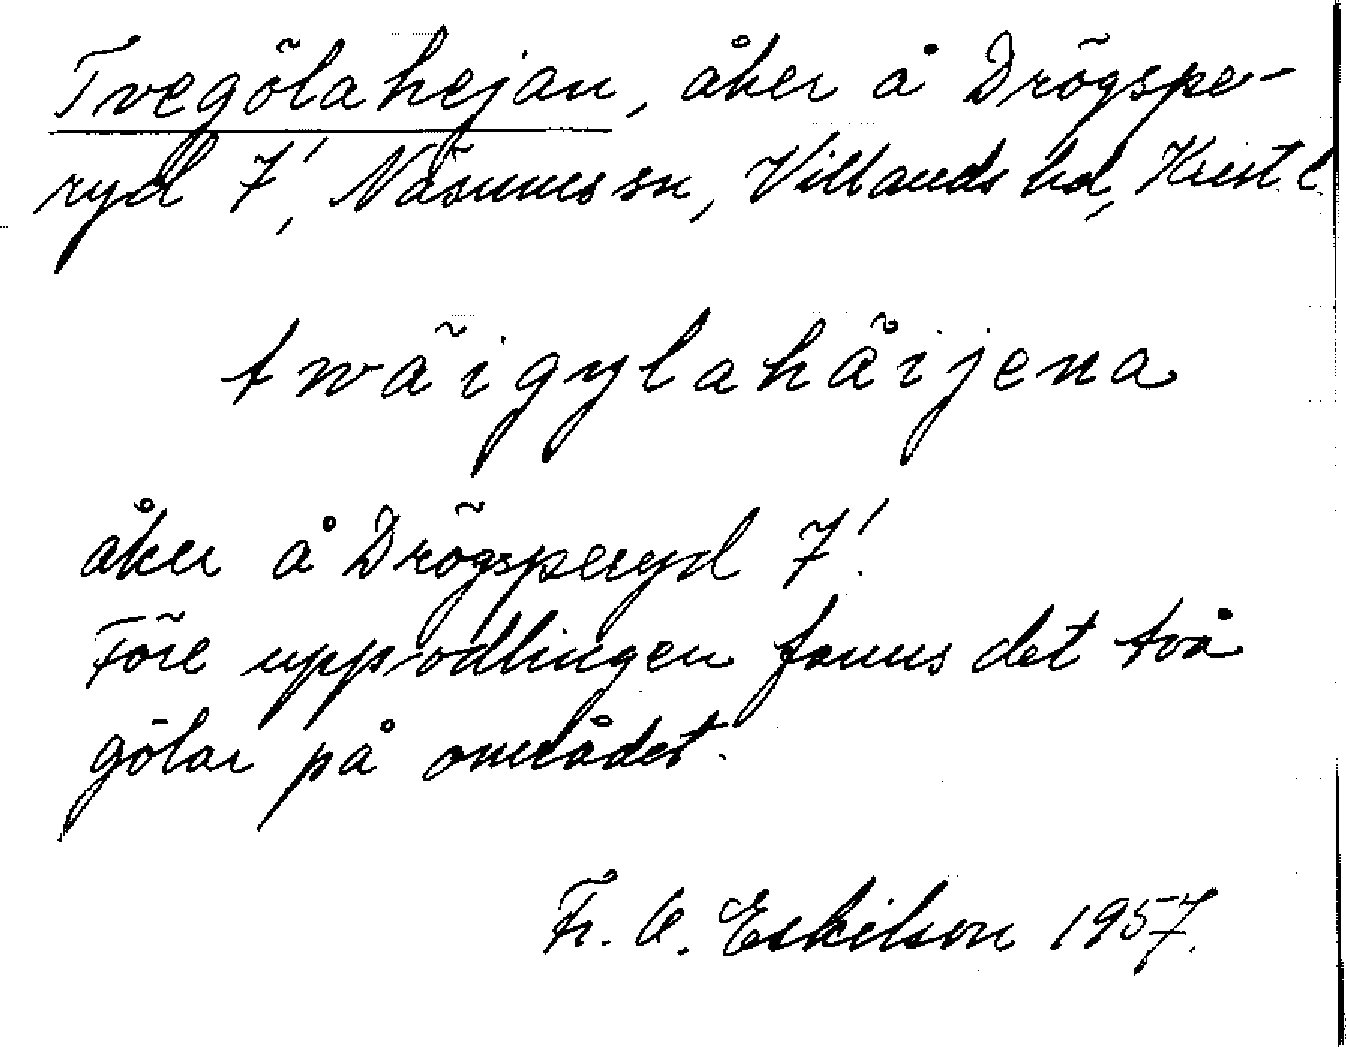 Tvegölahejan, åker å Drögspe-
ryd 7¹, Näsums sn, Villands hd, Krist. l.
twäigylahäijena
åker å Drögsperyd 7¹.
Före uppodlingen fanns det två
gölar på området.
Fr. O. Eskilson 1957.